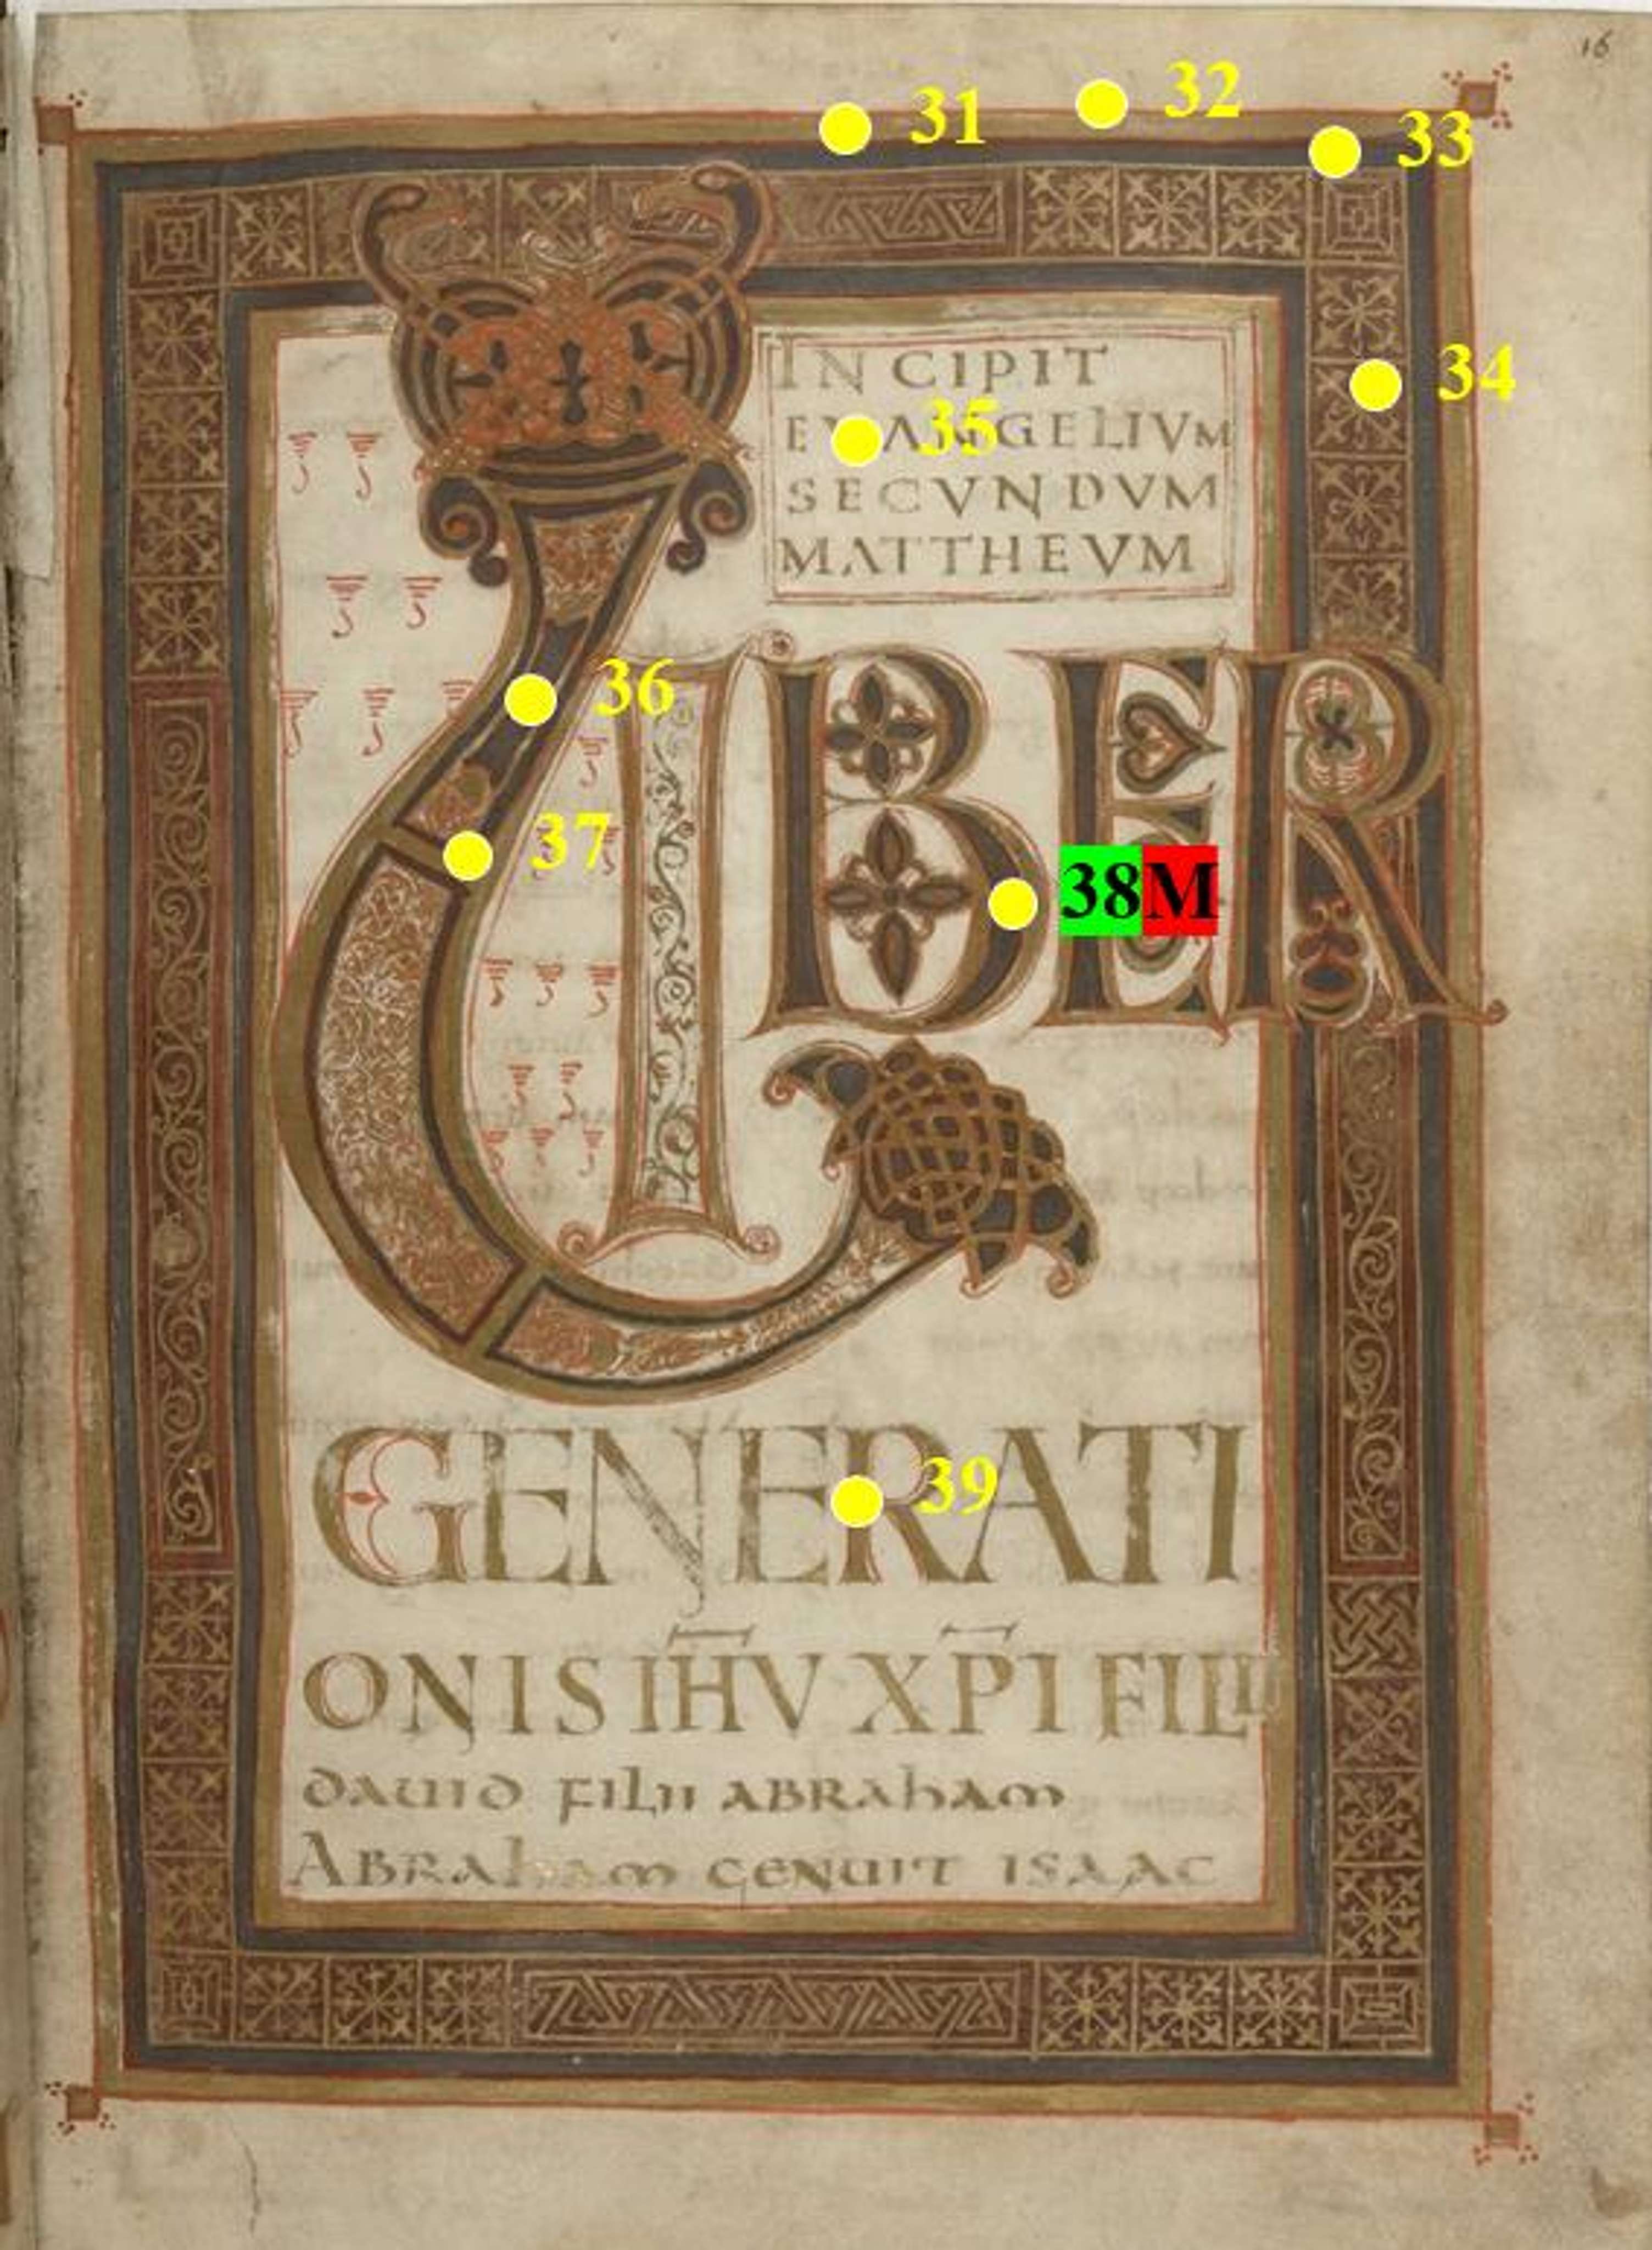 16
31
32
33
INCIPIT
34
EVANGELIVM
35
SECVNDVM
MATTHEVM
36
LIBER
37
38M
GENERATI
39
ONIS IHV XPI FILII
DAVID FILII ABRAHAM
ABRAHAM GENUIT ISAAC